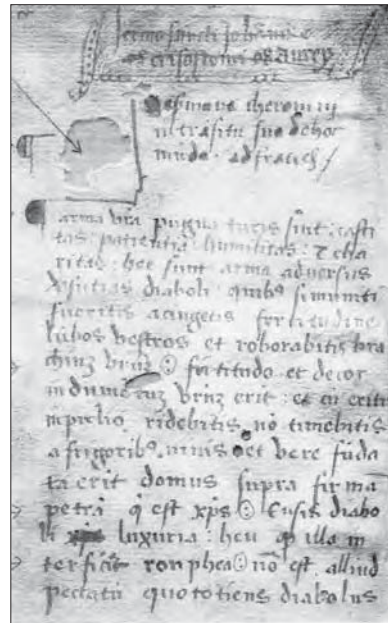 sermo sancti Johannis
os aurey
iheronimi
in trasitu suo de hoc
mudo . ad fratres /
arma vra sint : casti
tas : patientia : humilitas : & cha
ritas : hec sunt arma adversus
diaboli quib⁹ si muniti
fueritis acingetis fortitudine
lubos vestros et roborabitis bra
chiuz vruz : fortitudo et decor
indumetuz vruz erit : et cu eritis
in prelio ridebitis no timebitis
a frigorib⁹ nivis et vere fuda
ta erit domus supra firma
petra q̇ est xp̄s : Ensis diabo
li luxuria : heu illa in
terficit ronphea : nō est alliud
peccatū quo totiens diabolus